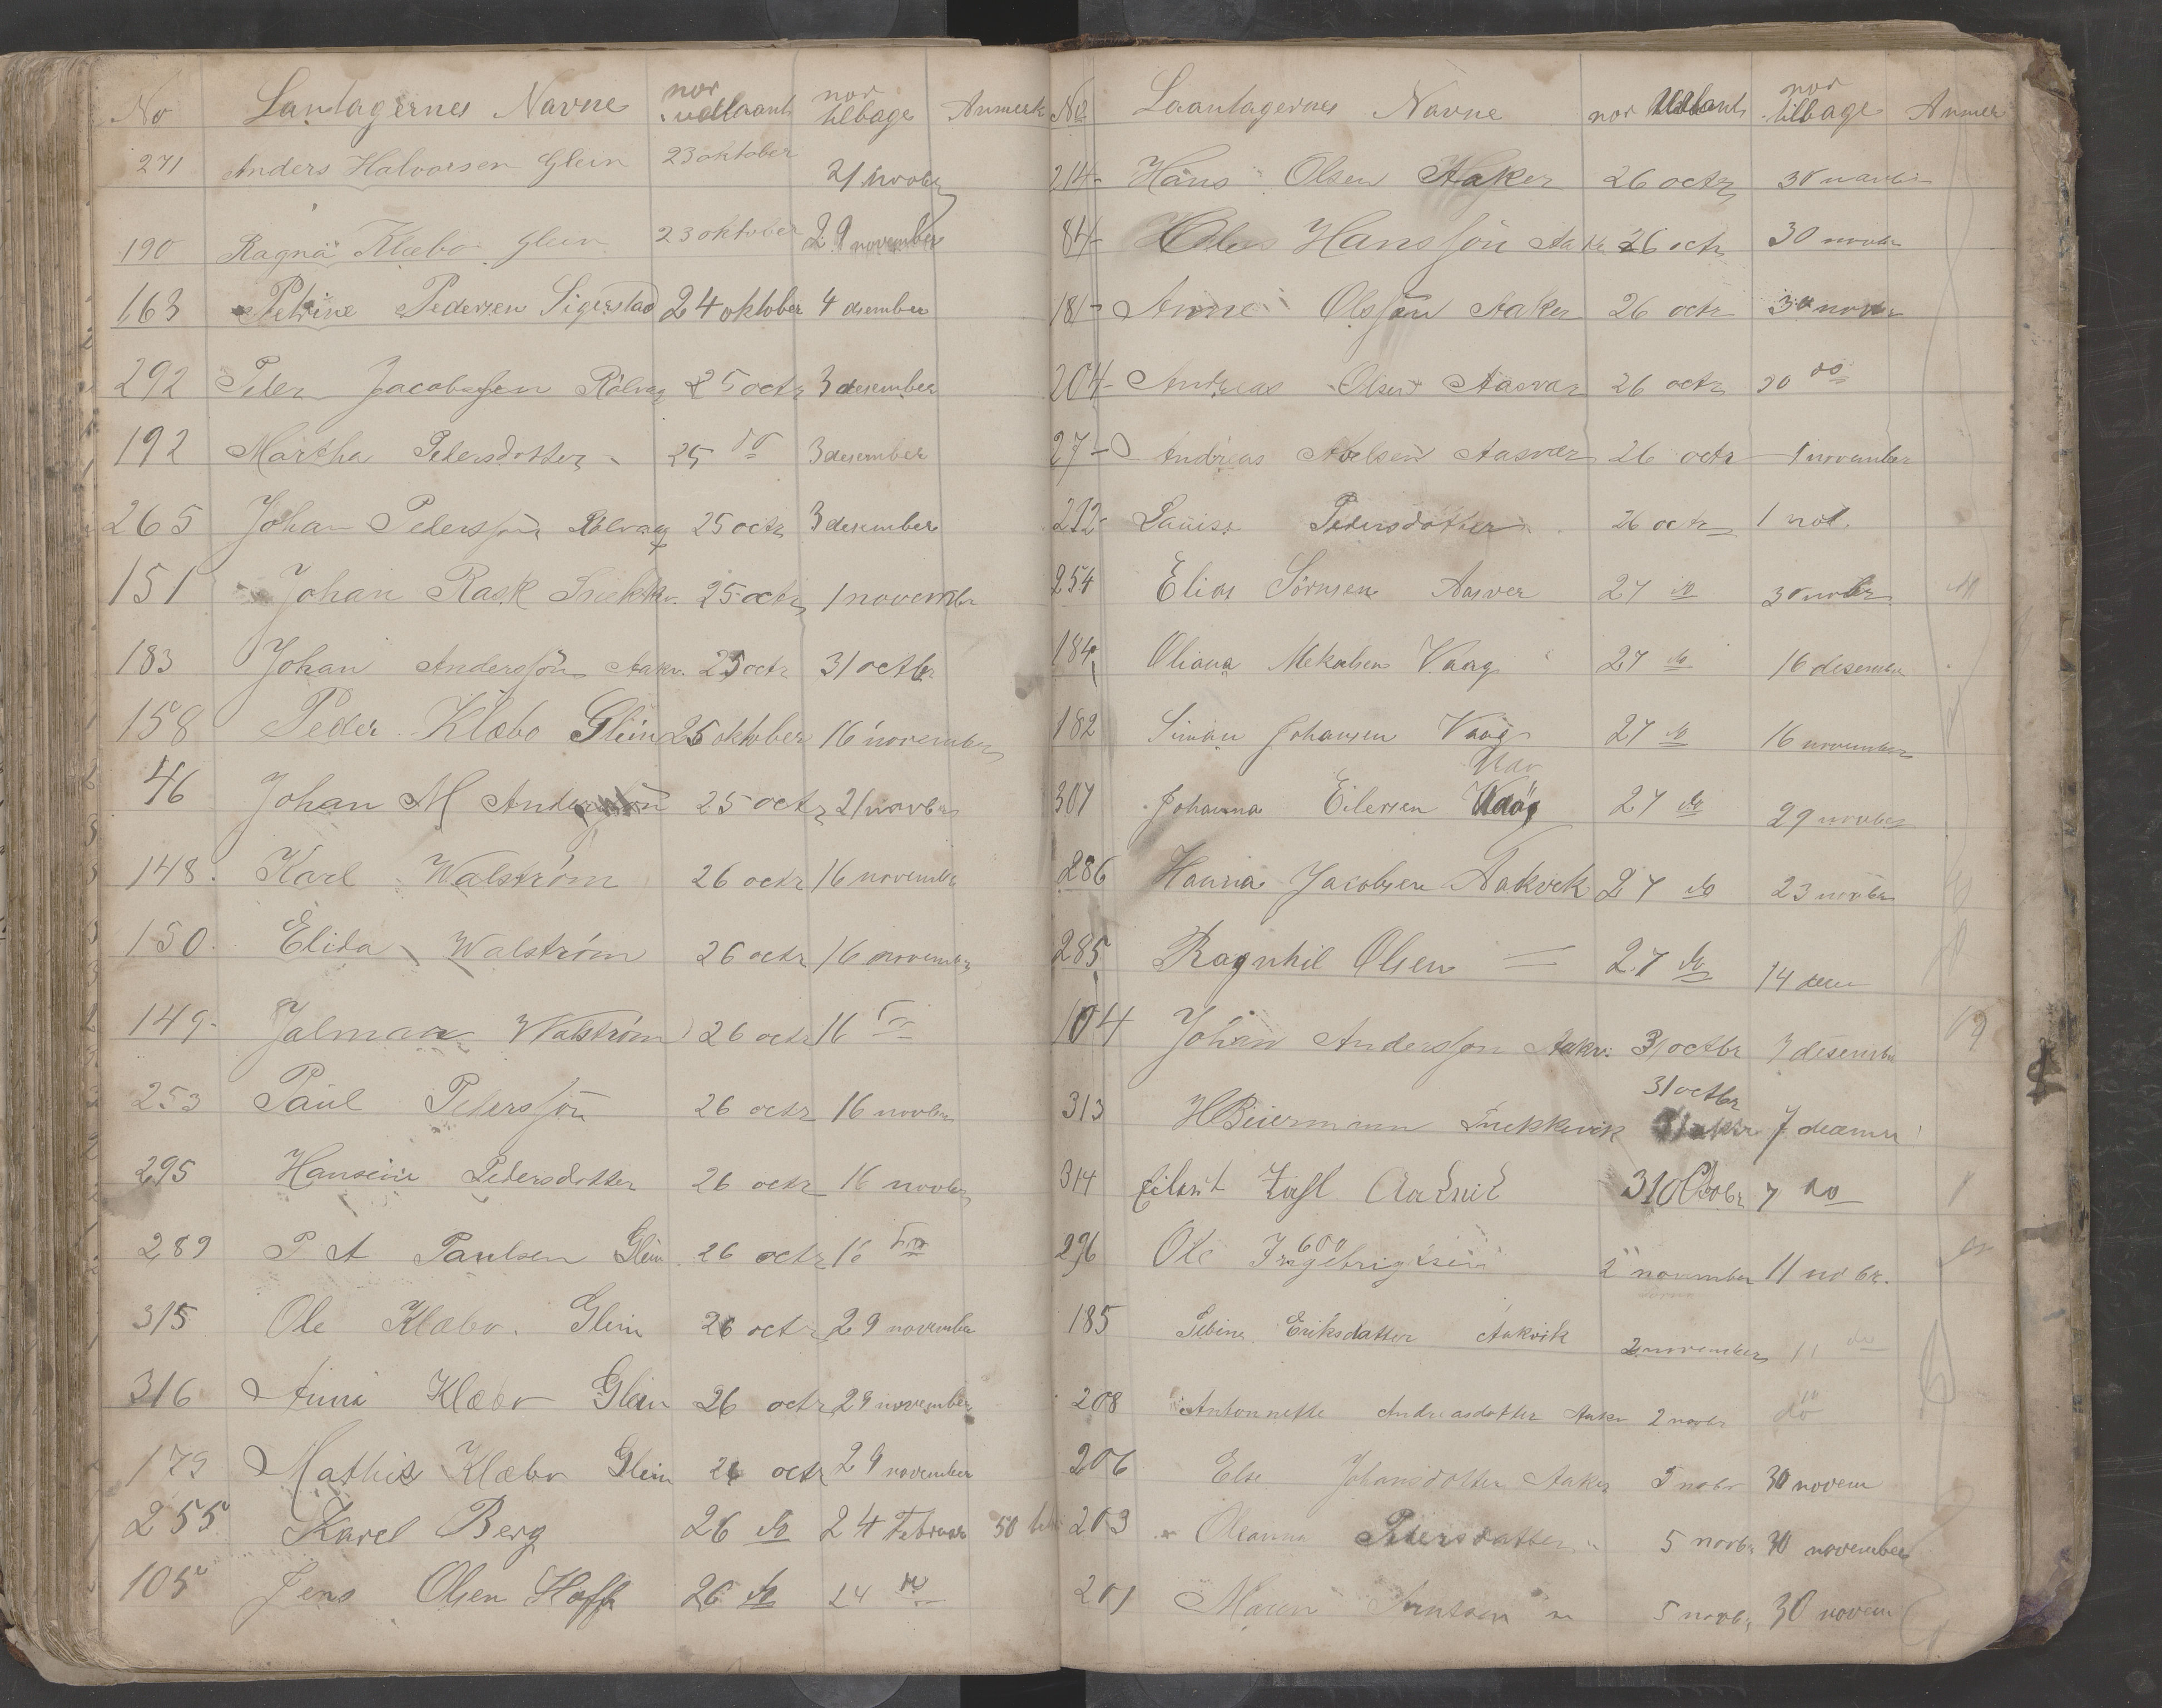 No Lantagernes Navne nor udlaant nor tilbage Anmerk
271 Anders Halvorsen Glein 23 oktober 21 novbr
190 Ragna Klæbo Glein 23 oktober 29 november
163 Petrine Pedersen Sigerstad 24 oktober 4 desember
292 Peder Jacobsen Rölvag 25 octr 3 desember
192 Martha Pedersdotter 25 do 3 desember
265 Johan Pederssön Rölvaag 25 octr 3 desember
151 Johan Rask 25 octr 1 november
183 Johan Anderssön Aakv. 25 octr 31 octbr
158 Peder Klæbo Glein 25 oktober 16 november
46 Johan M Anderssön 25 octr 21 novbr
148. Karl Walström 26 octr 16 novembr
150. Elida Walström 26 octr 16 novembr
149. Jalmar Walström 26 octr 16
253 Paul Peterssön 26 octr 16 novbr
295 Hansine Pedersdotter 26 octr 16 novbr
289 P A Paulsen Glein 26 octr 16
315 Ole Klæbo. Glein 26 octr 29 november
316 Anna Klæbo Glein 26 octr 29 november
179 Mathis Klæbo Glein 26 octr 29 november
255 Karel Berg 26 do 24 Februar 50
105 Jens Olsen Hoff 26 do 24 do
No Laantagernes Navne nor Udlaant nor tilbage Anmer
214 Hans Olsen Aaker 26 octr 30 novbr
84 Hanssön 26 octr 30 novbr
181 Anne Olssön Aaker 26 octr 30 novbr
204 Andreas Olsen Aasvær 26 octr 30 do
27 Andreas Abelsen Aasvær 26 octr 1 november
212 Lauise Pedersdotter 26 octr 1 nov.
254 Elias Sörnsen Aasvær 27 do 30 novbr
184 Oliana Vaag 27 do 16 desember
182 Simon Johansen Vaag 27 do 16 november
307 Johanna Eilersen 27 do 29 novbr
286 Hanna Jacobsen Aakvik 27 do 23 novbr
285 Ragnhil Olsen = 27 do 14 desem
104 Johan Anderssön Aakv. 31 octbr 7 desembr
31 octbr
313 H Biermann 7
314 31 Octobr 7 do
296 Ole Ingebrigtsen 2 november 11 nobr.
185 Eriksdatter Aakvik 2 november 11 do
208 Antonnette Andreasdotter Aakr 2 novbr do
206 Else Johansdotter Aaker 5 nobr 30 novem
203 Oleanna Pedersdatter 5 novbr 30 november
201 Maren 5 novbr 30 novem